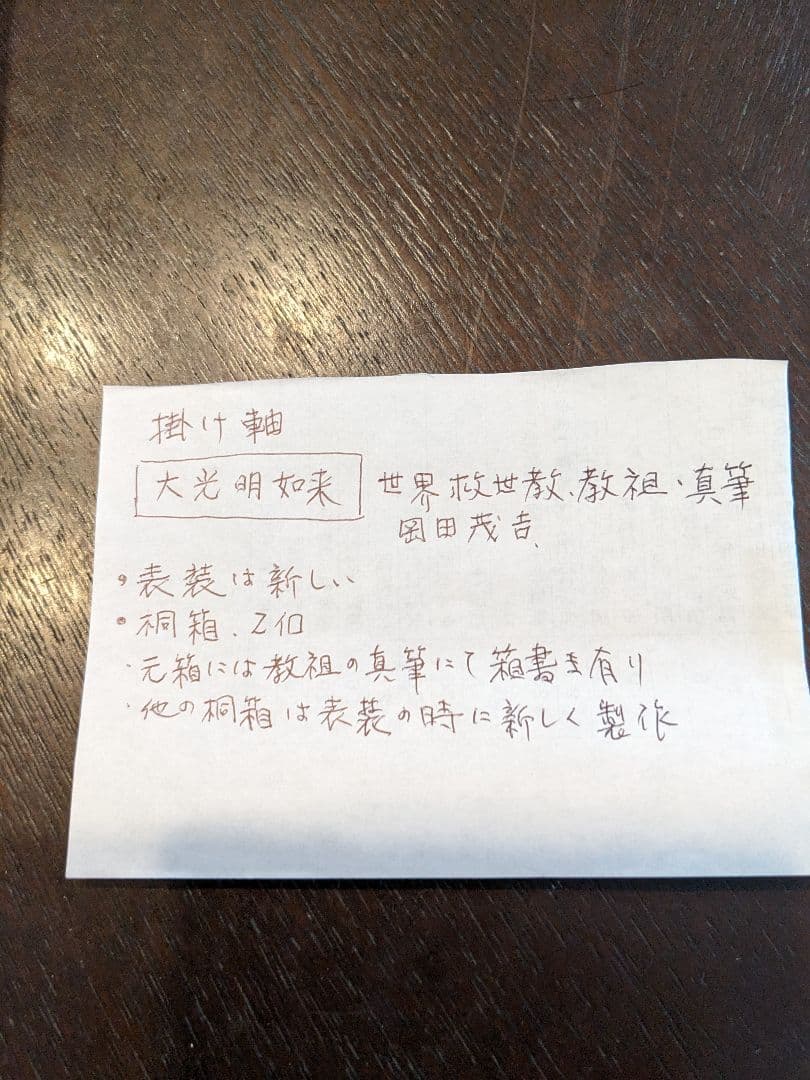 掛け軸
大光明如来 世界救世教、教祖、真筆
岡田茂吉、
・表装は新しい
・桐箱、2個
・元箱には教祖の真筆にて箱書き有り
・他の桐箱は表装の時に新しく製作